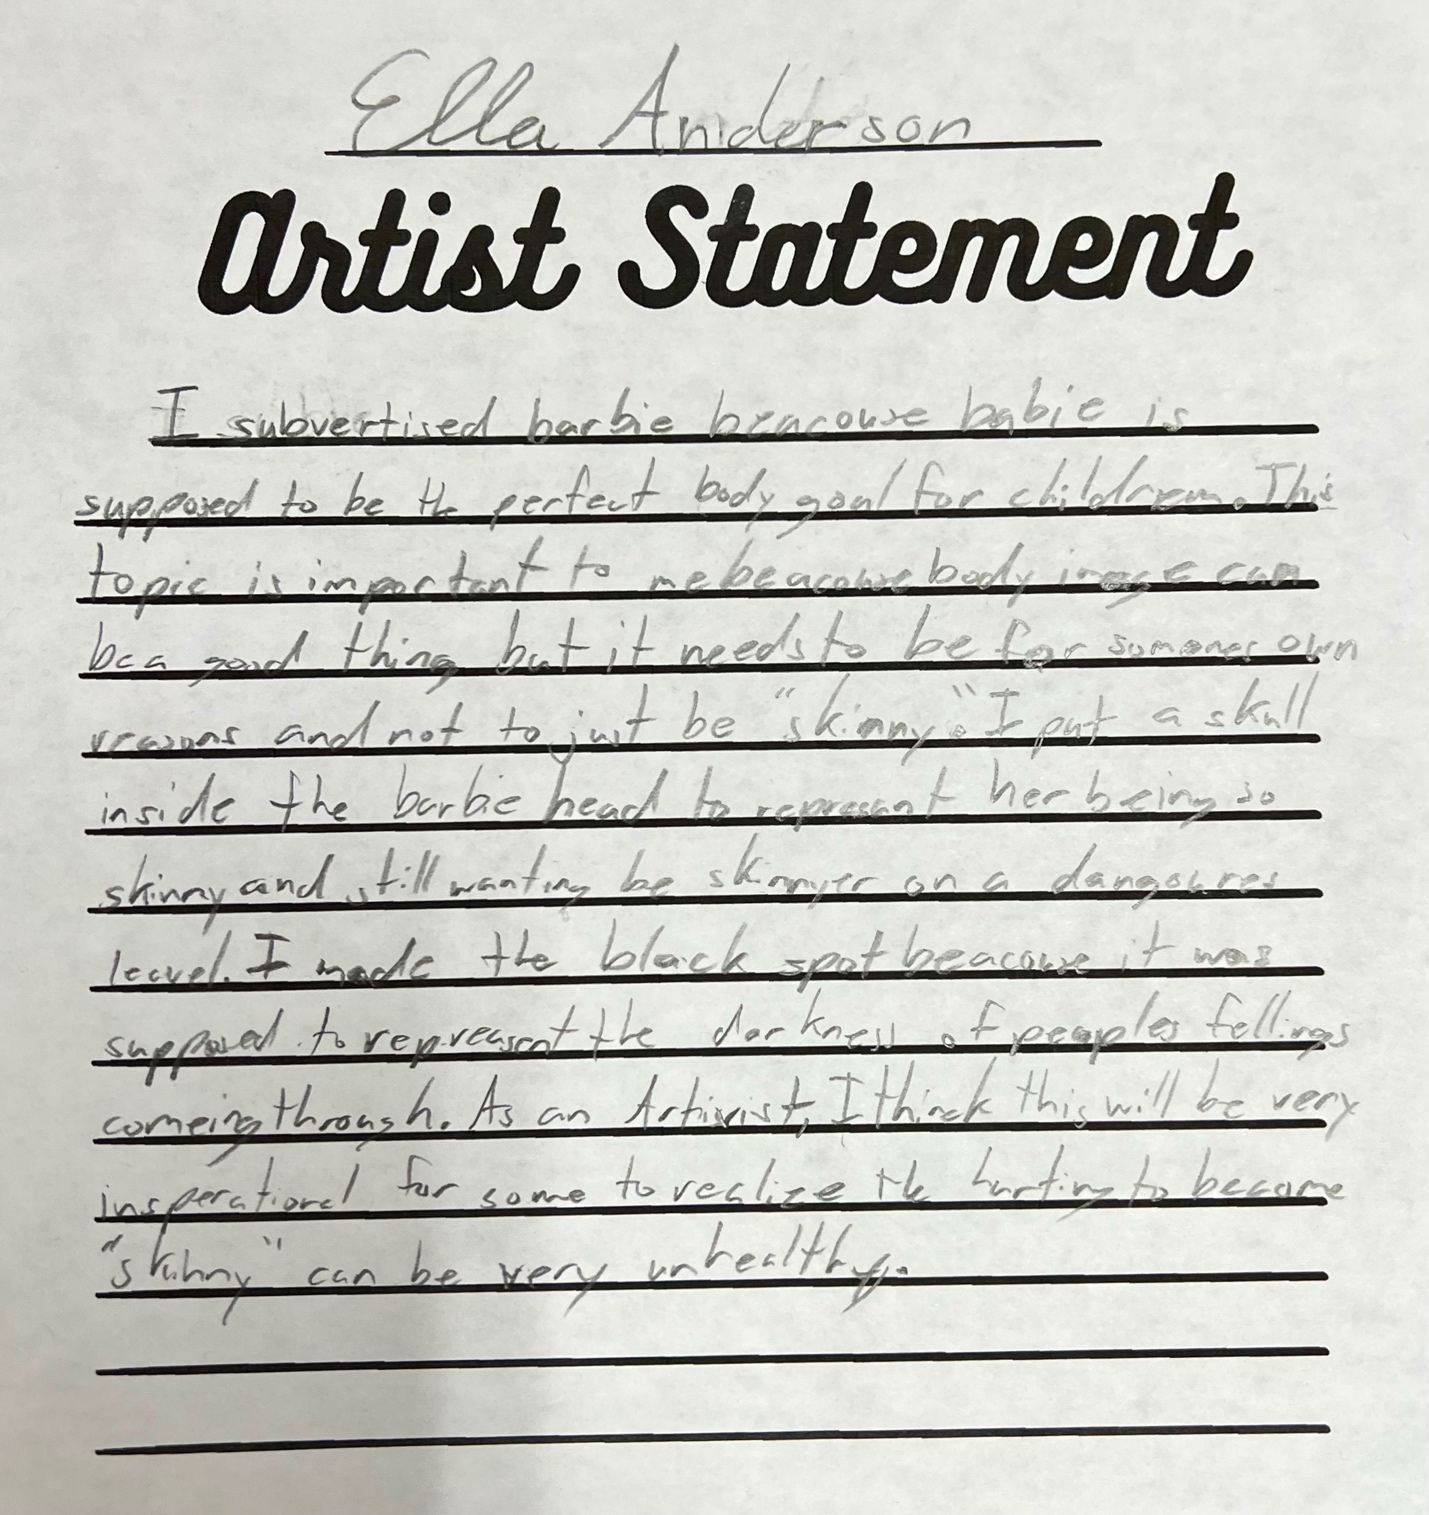 Ella Anderson
Artist Statement
I subvertised barbie beacouse babie is
supposed to be the perfect body goal for childrem. This
topic is important to me beacouse body image can
be a good thing but it needs to be for somones own
reasons and not to just be "skinny". I put a skull
inside the barbie head to represant her being so
skinny and still wanting be skinnyer on a dangoures
leavel. I made the black spot beacouse it was
supposed to repreasent the darkness of peaples fellings
comeing through. As an Artivist, I think this will be very
insperational for some to realize the hurting to become
"skinny" can be very unhealthy.